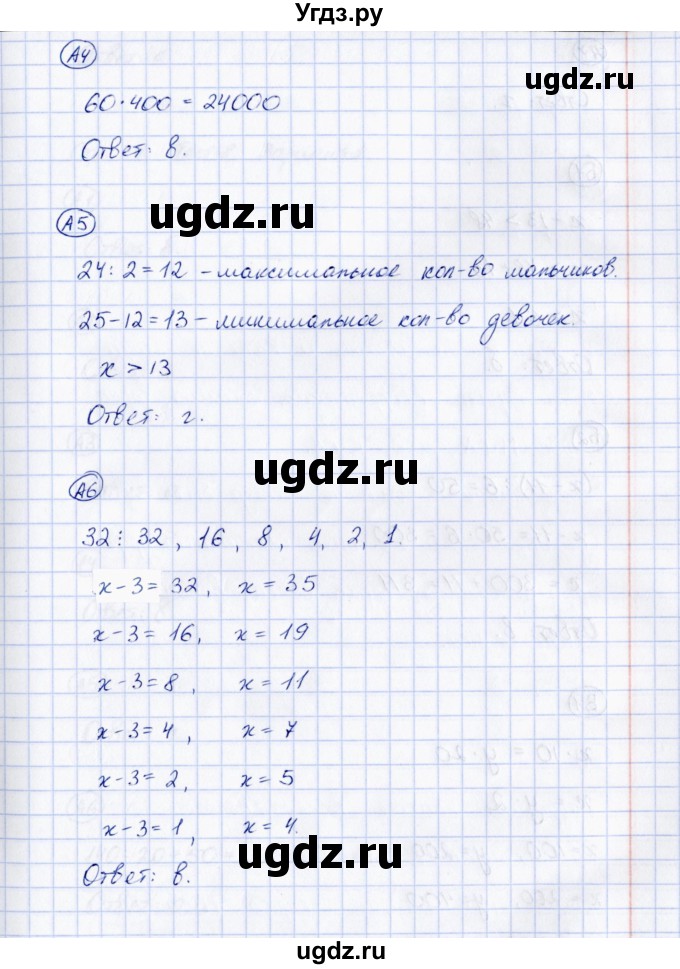 Угдз.ру
А4
ugdz.ru
60·400 = 24000
Ответ: в.
А5
ugdz.ru
24 : 2 = 12 - максимальное кол-во мальчиков.
25-12 = 13 - минимальное кол-во девочек.
x > 13
Ответ: г.
ugdz.ru
А6
32 ⋮ 32, 16, 8, 4, 2, 1.
x - 3 = 32, x = 35
x - 3 = 16, x = 19
x - 3 = 8, x = 11
x - 3 = 4, x = 7
x - 3 = 2, x = 5
x - 3 = 1, x = 4.
ugdz.ru
Ответ: в.
ugdz.ru